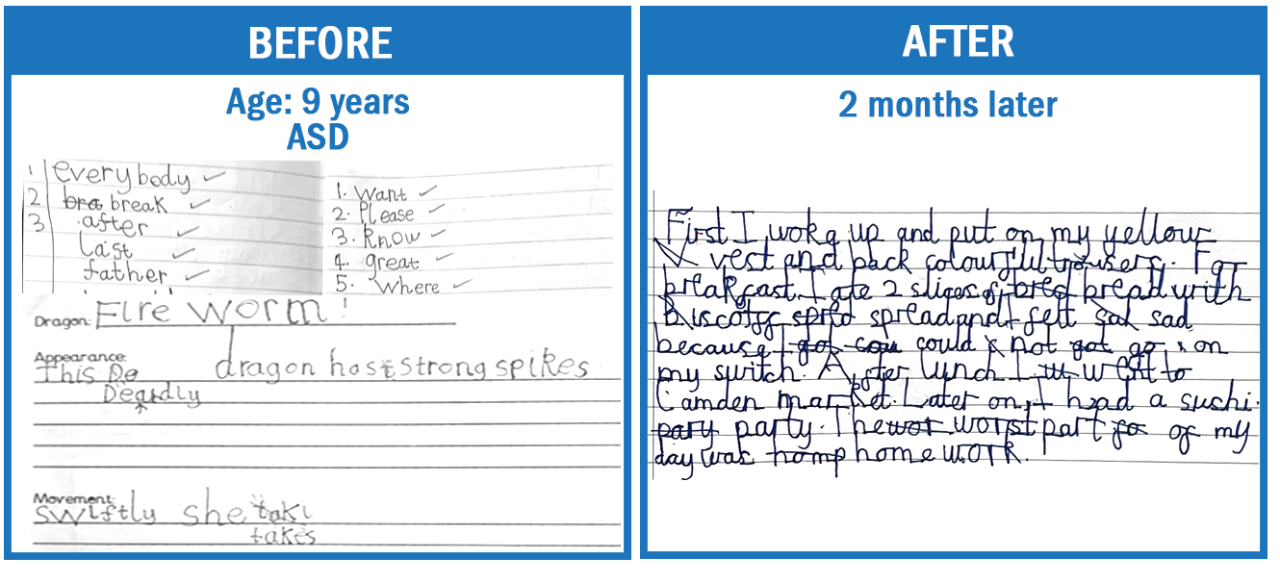 BEFORE
Age: 9 years
ASD
1 everybody ✓
2 bra break ✓
3 after ✓
last ✓
father ✓
1. Want ✓
2. Please ✓
3. Know ✓
4. great ✓
5. Where ✓
Dragon: Fire worm!
Appearance:
This De dragon has strong spikes
Deadly
Movement:
swiftly she taki
takes
AFTER
2 months later
First I woke up and put on my yellow
vest and back colourful trousers. For
breakfast I ate 2 slices of bred bread with
Biscoff spred spread and I felt sad
because I got cou could not got go on
my switch. After lunch I went to
Camden market. Later on, I had a suchi
party party. The wor worst part fo of my
day was homp homework.